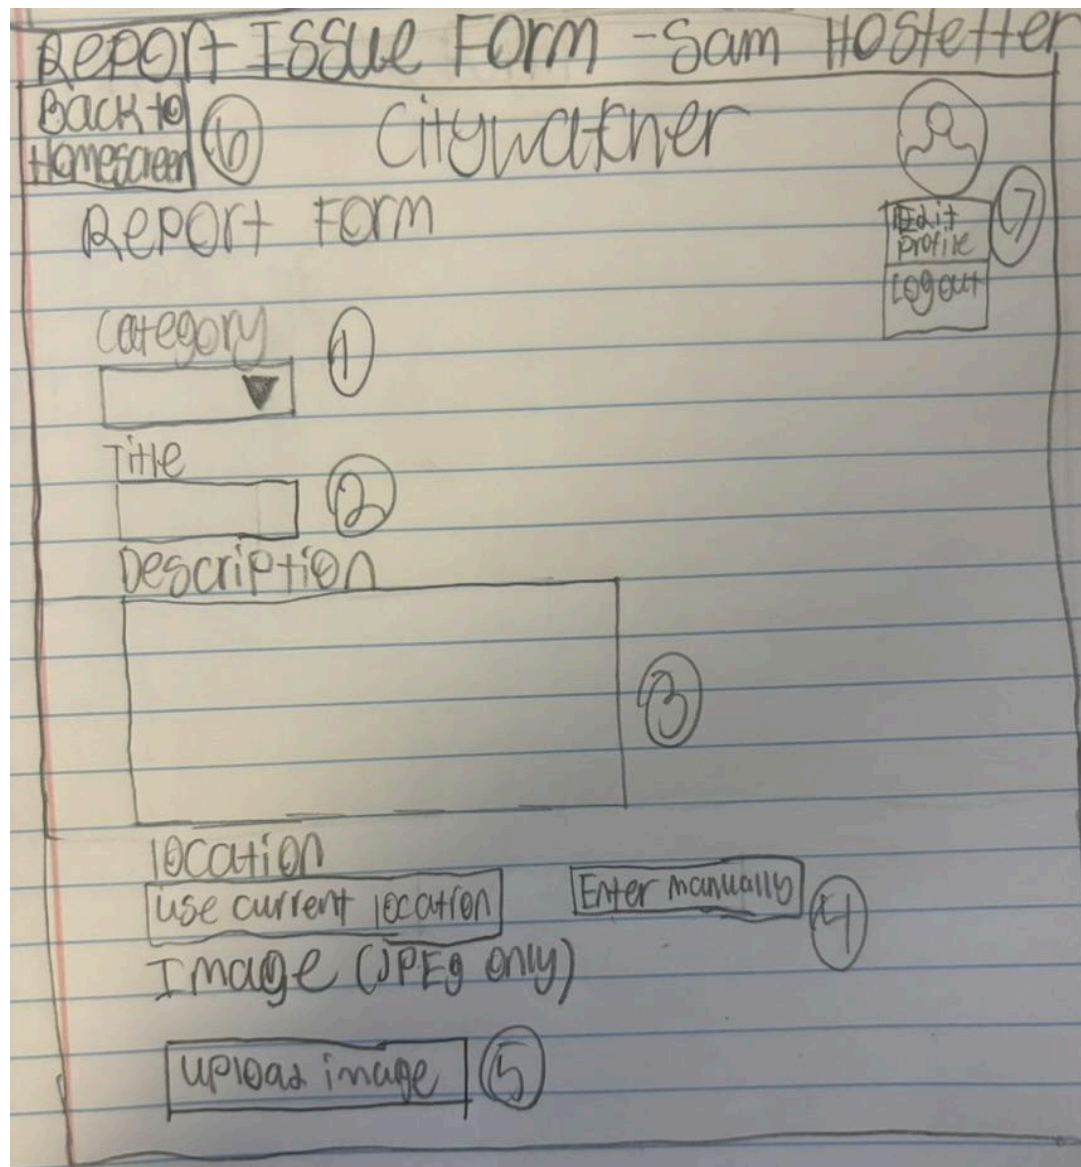 Report Issue Form - Sam Hostetter
Back to
Homescreen
6
Citywatcher
Edit
Profile
7
Logout
Report Form
Category
1
Title
2
Description
3
location
use current location
Enter manually
4
Image (JPEg only)
upload image
5